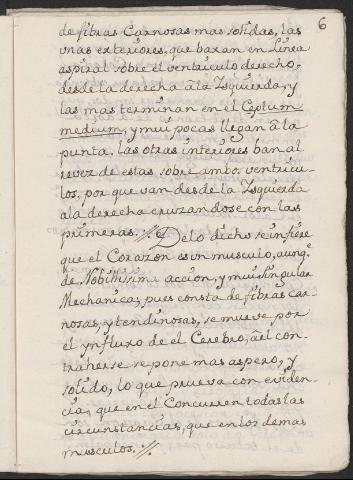 6
de fibras Carnosas mas solidas, las
unas exteriores, que baxan en Linea
aspiral sobre el ventriculo derecho,
desde la derecha âla Izquierda, y
las mas terminan en el Ceptum
medium, y mui pocas llegan âla
punta. las otras interiores ban al
revez de estas sobre ambo, ventricu-
los, por que van desde la Izquierda
ala derecha cruzandose con las
primeras. //. Delo dicho se infiere
que el Corazon es un musculo, aunqe.
de Nobilissima accion, y mui singular
Mechanica; pues consta de fibras car-
nosas, y tendinosas, se mueve por
el ynfluxo de el Cerebro, âel con
traherse se pone mas aspero, y
solido, lo que prueva con eviden-
cia, que en el Concurren todas las
circunstancias, que en los demas
musculos. //.